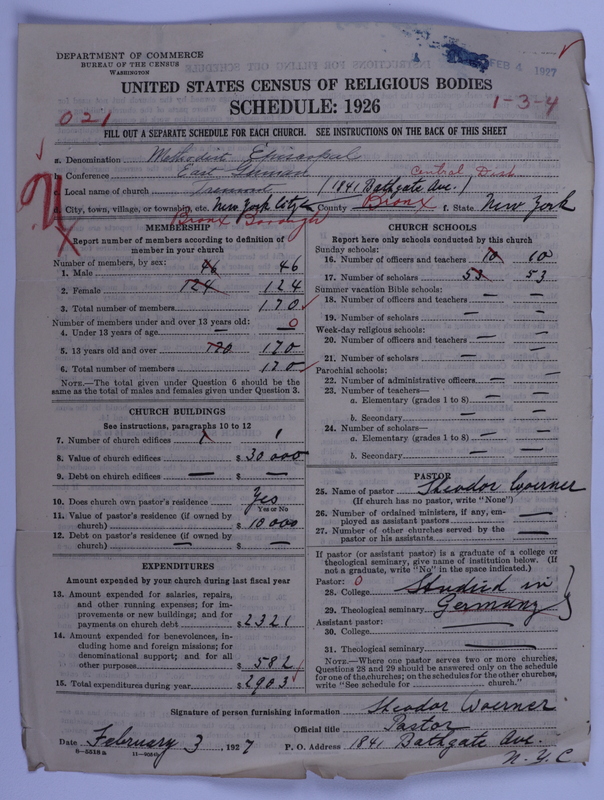 DEPARTMENT OF COMMERCE
BUREAU OF THE CENSUS
WASHINGTON
FEB 4 1927
UNITED STATES CENSUS OF RELIGIOUS BODIES
SCHEDULE: 1926
1-3-4
021
FILL OUT A SEPARATE SCHEDULE FOR EACH CHURCH. SEE INSTRUCTIONS ON THE BACK OF THIS SHEET
a. Denomination Methodist Episcopal
b. Conference East German Central Dist
c. Local name of church Tremont (1841 Bathgate Ave.)
d. City, town, village, or township, etc. New York City e. County Bronx f. State New York
Bronx Borough
MEMBERSHIP
Report number of members according to definition of member in your church
Number of members, by sex:
1. Male 46 46
2. Female 124 124
3. Total number of members 170
Number of members under and over 13 years old:
4. Under 13 years of age — 0
5. 13 years old and over 170 170
6. Total number of members 170
NOTE.—The total given under Question 6 should be the
same as the total of males and females given under Question 3.
CHURCH BUILDINGS
See instructions, paragraphs 10 to 12
7. Number of church edifices 1 1
8. Value of church edifices $ 30 000
9. Debt on church edifices — $ —
10. Does church own pastor's residence Yes
Yes or No
11. Value of pastor's residence (if owned by
church) $ 10 000
12. Debt on pastor's residence (if owned by
church) — $ —
EXPENDITURES
Amount expended by your church during last fiscal year
13. Amount expended for salaries, repairs,
and other running expenses; for im-
provements or new buildings; and for
payments on church debt $ 2321
14. Amount expended for benevolences, in-
cluding home and foreign missions; for
denominational support; and for all
other purposes $ 582
15. Total expenditures during year $ 2903
CHURCH SCHOOLS
Report here only schools conducted by this church
Sunday schools:
16. Number of officers and teachers 10 10
17. Number of scholars 53 53
Summer vacation Bible schools:
18. Number of officers and teachers — —
19. Number of scholars — —
Week-day religious schools:
20. Number of officers and teachers — —
21. Number of scholars — —
Parochial schools:
22. Number of administrative officers — —
23. Number of teachers—
a. Elementary (grades 1 to 8) — —
b. Secondary — —
24. Number of scholars—
a. Elementary (grades 1 to 8) — —
b. Secondary — —
PASTOR
25. Name of pastor Theodor Woerner
(If church has no pastor, write "None")
26. Number of ordained ministers, if any, em-
ployed as assistant pastors —
27. Number of other churches served by the
pastor or his assistants —
If pastor (or assistant pastor) is a graduate of a college or
theological seminary, give name of institution below. (If
not a graduate, write "No" in the space indicated.)
Pastor: 0
28. College Studied in
29. Theological seminary Germany
Assistant pastor:
30. College —
31. Theological seminary —
NOTE.—Where one pastor serves two or more churches,
Questions 28 and 29 should be answered only on the schedule
for one of the churches; on the schedules for the other churches,
write "See schedule for church."
Signature of person furnishing information Theodor Woerner
Official title Pastor
Date February 3 1927 P. O. Address 1841 Bathgate Ave.
N. Y. C